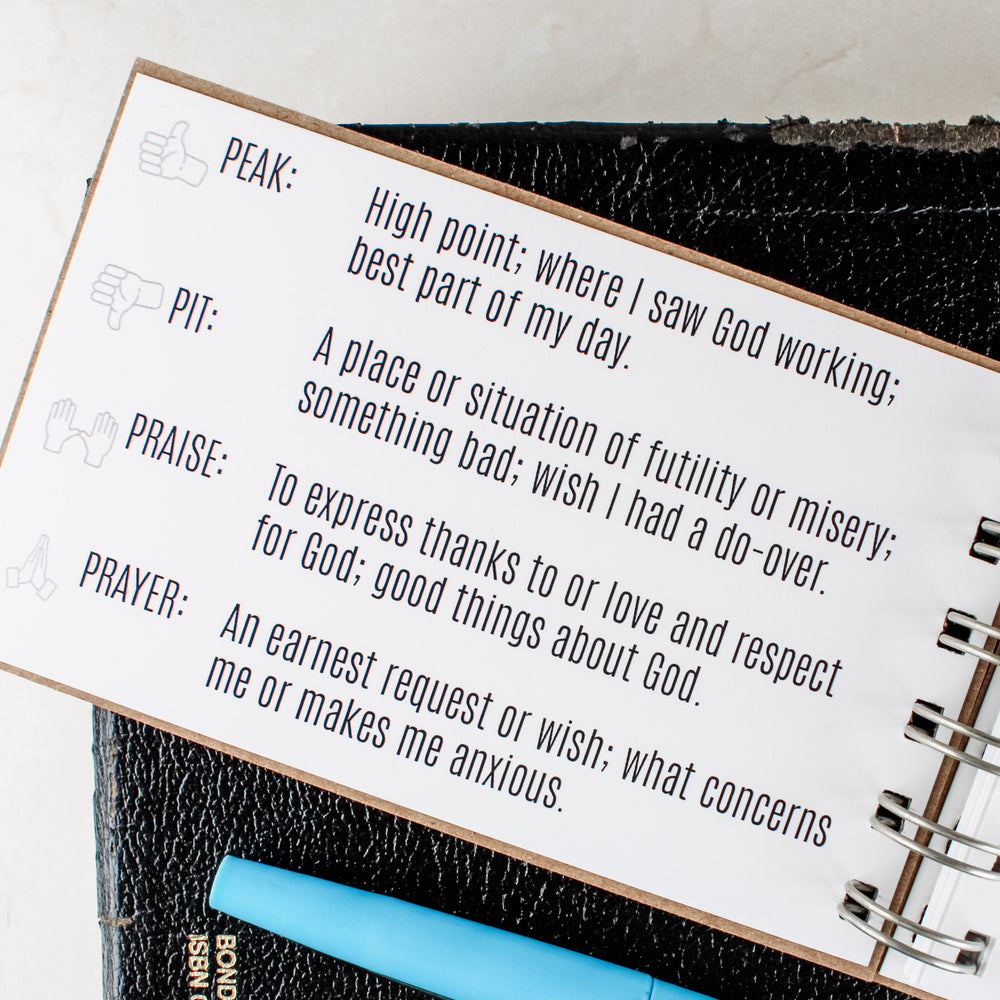 PEAK:
High point; where I saw God working;
best part of my day.
PIT:
A place or situation of futility or misery;
something bad; wish I had a do-over.
PRAISE:
To express thanks to or love and respect
for God; good things about God.
PRAYER:
An earnest request or wish; what concerns
me or makes me anxious.
BOND
ISBN